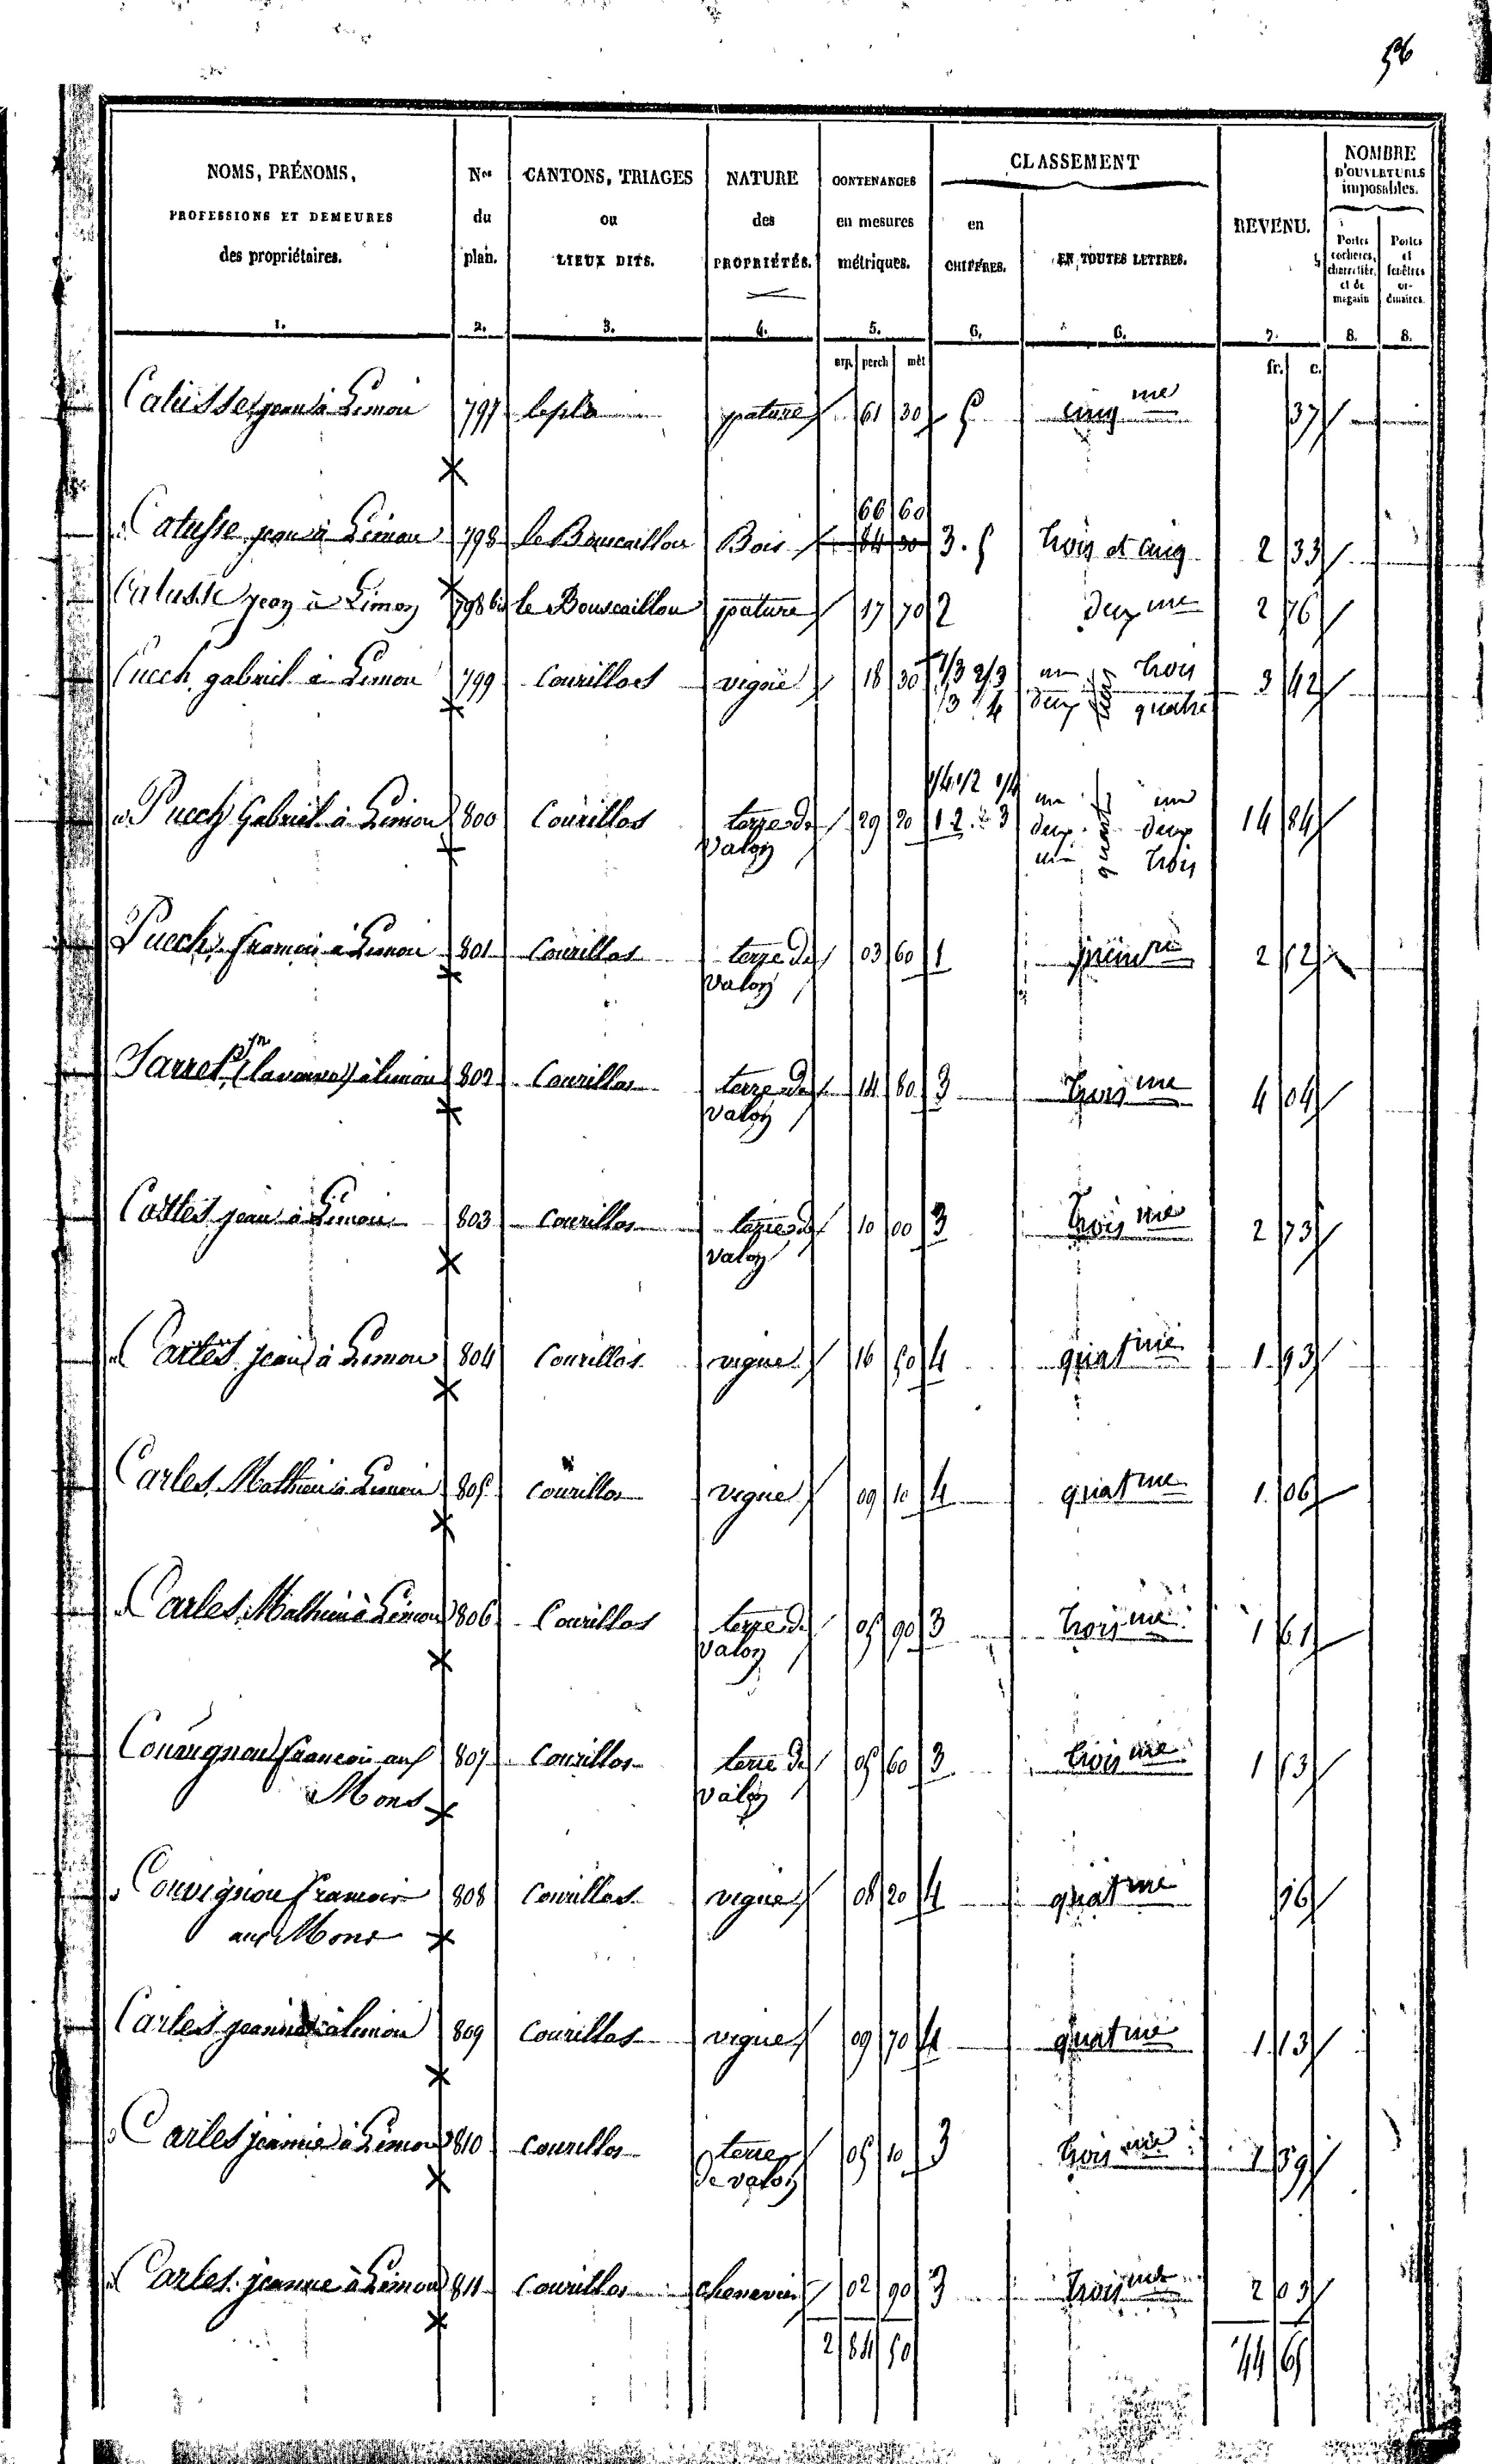 56
NOMS, PRÉNOMS, PROFESSIONS ET DEMEURES des propriétaires. | Nos du plan. | CANTONS, TRIAGES ou LIEUX DITS. | NATURE des PROPRIÉTÉS. | CONTENANCES en mesures métriques. | CLASSEMENT en CHIFFRES. | EN TOUTES LETTRES. | REVENU. | NOMBRE D'OUVERTURES imposables. Portes cochères, charretière, et de magasin | Portes et fenêtres ordinaires.
1. 2. 3. 4. 5. 6. 6. 7. 8. 8.
arp. perch mèt fr. c.
Catusse jean à Limon 797 lepla pature 61 30 5 cinq me 37
66 60
Catusse jean à Limon 798 le Bouscaillou Bois 84 30 3. 5 trois et cinq 2 33
Catusse jean à Limon 798 bis le Bouscaillou pature 17 70 2 deux me 2 76
Puech gabriel à Limon 799 Courillos vigne 18 30 1/3 2/3 un trois 3 42
13 24 deux tiers quatre
1/4 1/2 1/4 un un
Puech Gabriel à Limon 800 Courillos terre de 29 20 1 2. 3 deux quarts deux 14 84
valon un trois
Puech francois à Limon 801 Courillos terre de 03 60 1 prem re 2 52
valon
Jarret jn à limon 802 Courillos terre de 14 80 3 trois me 4 04
valon
Carles jean à Limon 803 Courillos terre de 10 00 3 trois me 2 73
valon
Carles jean à Limon 804 Courillos vigne 16 50 4 quat me 1 93
Carles Mathieu à Limon 805 Courillos vigne 09 10 4 quat me 1 06
Carles Mathieu à Limon 806 Courillos terre de 05 90 3 trois me 1 61
valon
Couvignou francois aux 807 Courillos terre de 05 60 3 trois me 1 53
Mons valon
Couvignou francois 808 Courillos vigne 08 20 4 quat me 96
aux Mons
Carles jeanne à limon 809 Courillos vigne 09 70 4 quat me 1 13
Carles jeanne à Limon 810 Courillos terre 05 10 3 trois me 1 39
de valon
Carles jeanne à Limon 811 Courillos chenevier 02 90 3 trois me 2 03
2 84 50 44 65